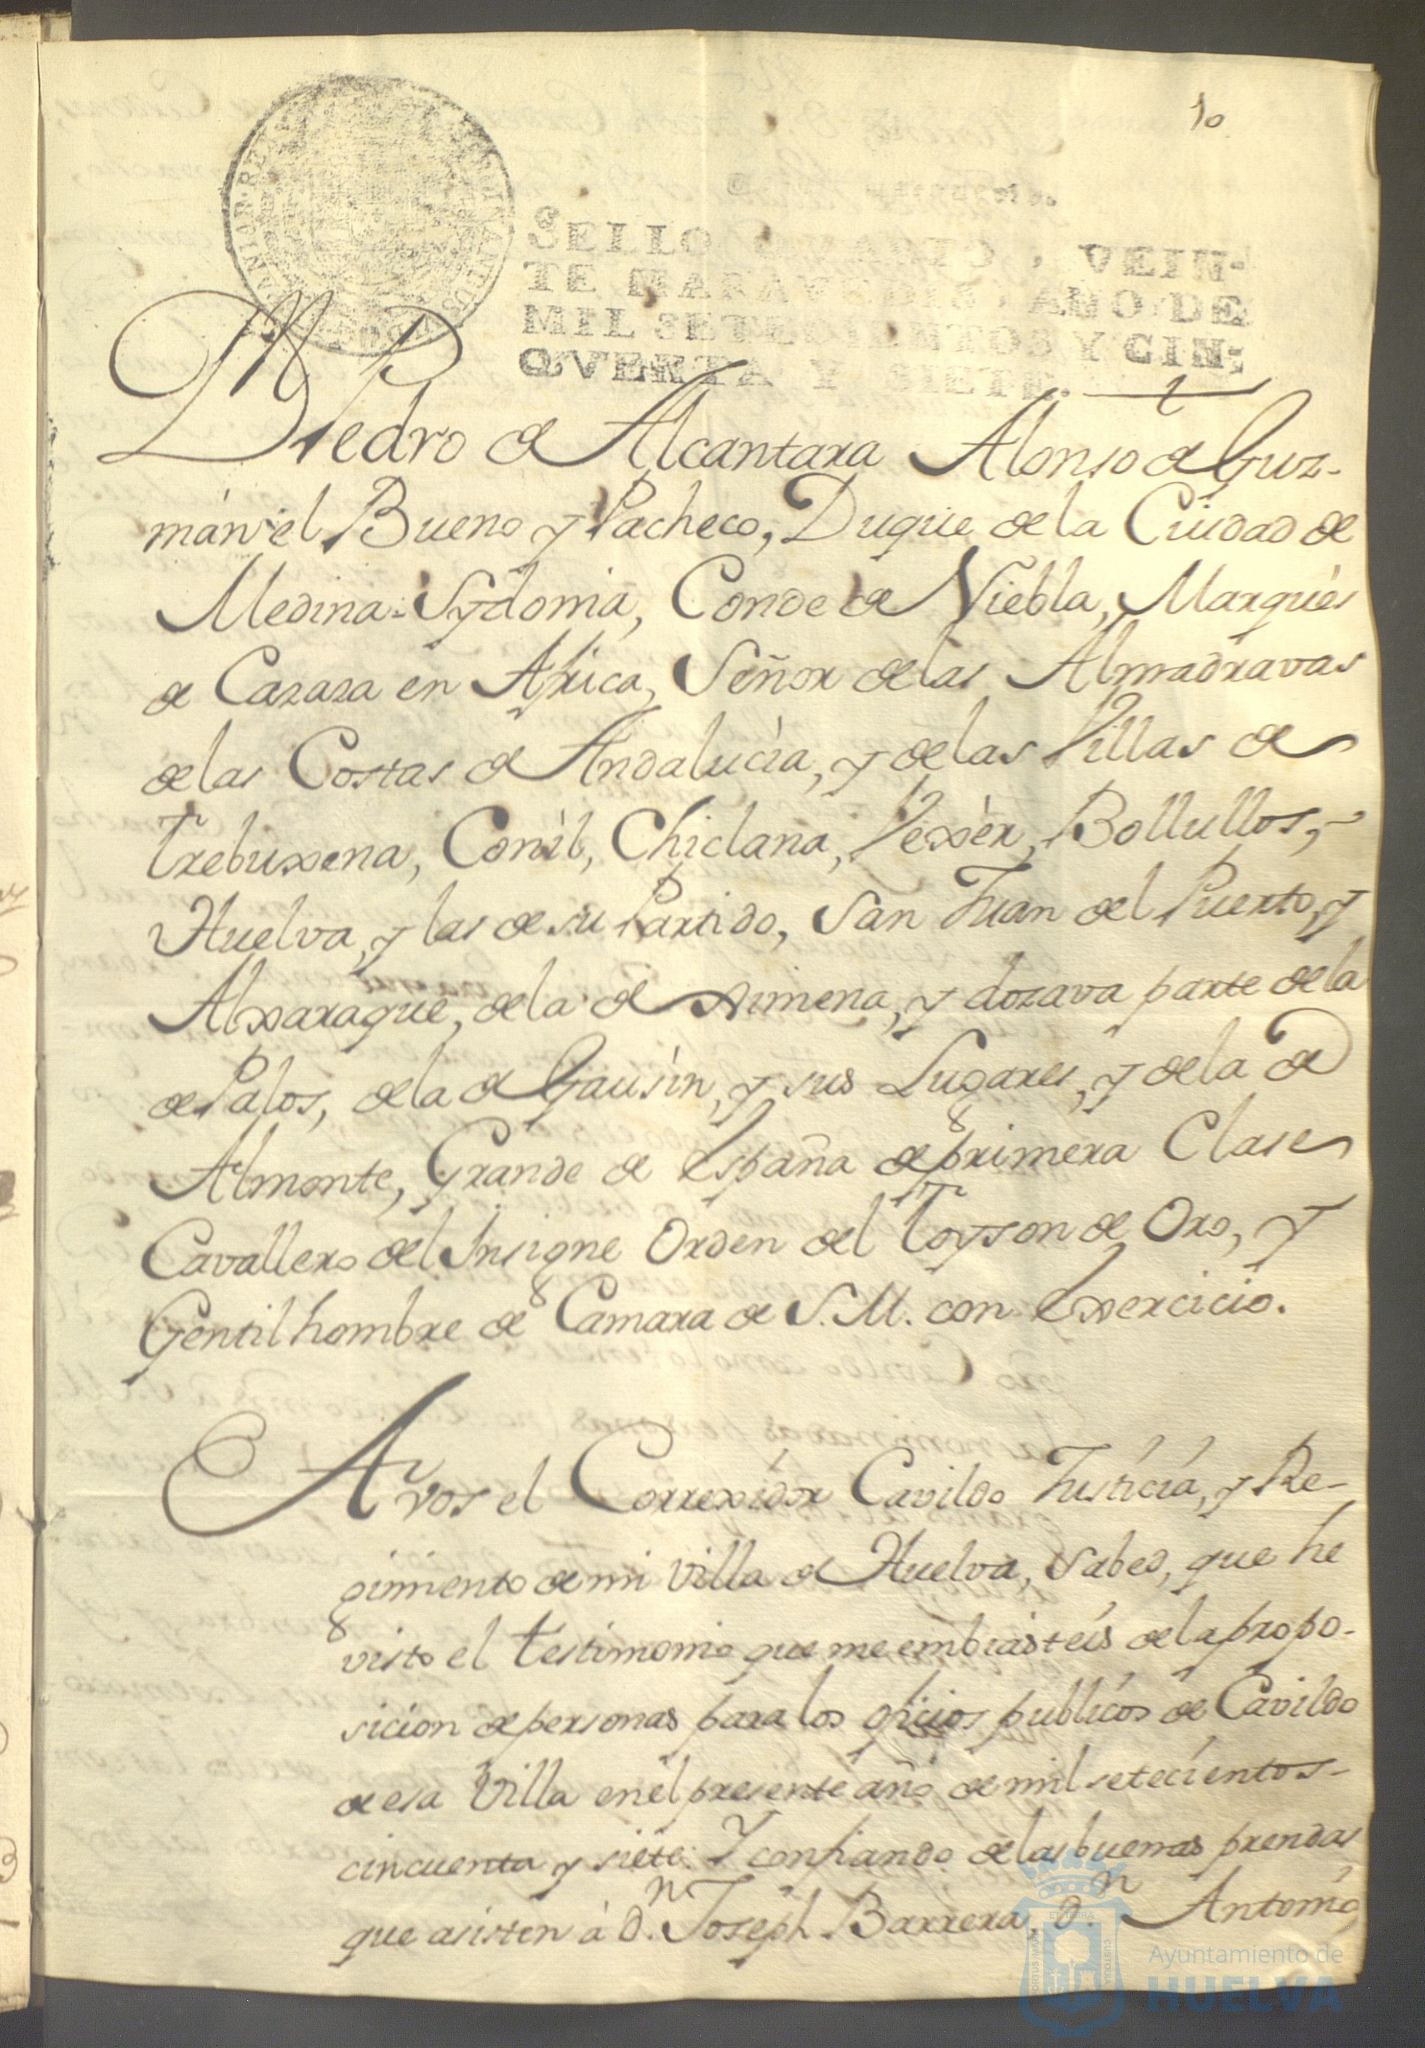 10
SELLO QVARTO, VEIN-
TE MARAVEDIS, AÑO DE
MIL SETECIENTOS Y CIN;
QVENTA Y SIETE.
Dn Pedro de Alcantara Alonso de Guz-
mán el Bueno y Pacheco, Duque de la Ciudad de
Medina-Sydonia, Conde de Niebla, Marqués
de Cazaza en Africa, Señor de las Almadravas
de las Costas de Andalucía, y de las Villas de
Trebuxena, Conil, Chiclana, Vexèr, Bollullos,
Huelva, y las de su Partido, San Juan del Puerto, y
Alxaraque, de la de Ximena, y dozava parte de la
de Palos, de la de Gausín, y sus Lugares, y de la de
Almonte, Grande de España de primera Clase
Cavallero del Insigne Orden del Toyson de Oro, y
Gentilhombre de Camara de S.M. con Exercicio.
A vos el Correxidor Cavildo Justicia, y Re-
gimiento de mi Villa de Huelva, Sabed, que he
visto el testimonio que me embiasteís de la propo-
sicion de personas para los oficios publicos de Cavildo
de esa Villa en el presente año de mil setecientos
cincuenta y siete: Y confiando de las buenas prendas
que asisten á Dn. Joseph Barrera, Dn. Antonio
Ayuntamiento de
HUELVA